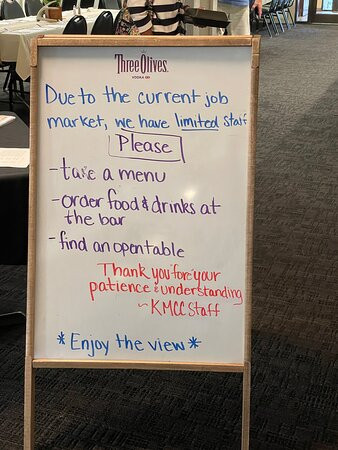 Three Olives.
VODKA
Due to the current job
market, we have limited staff
Please
- take a menu
- order food & drinks at
the bar
- find an open table
Thank you fore your
patience & understanding
~ KMCC Staff
* Enjoy the view *